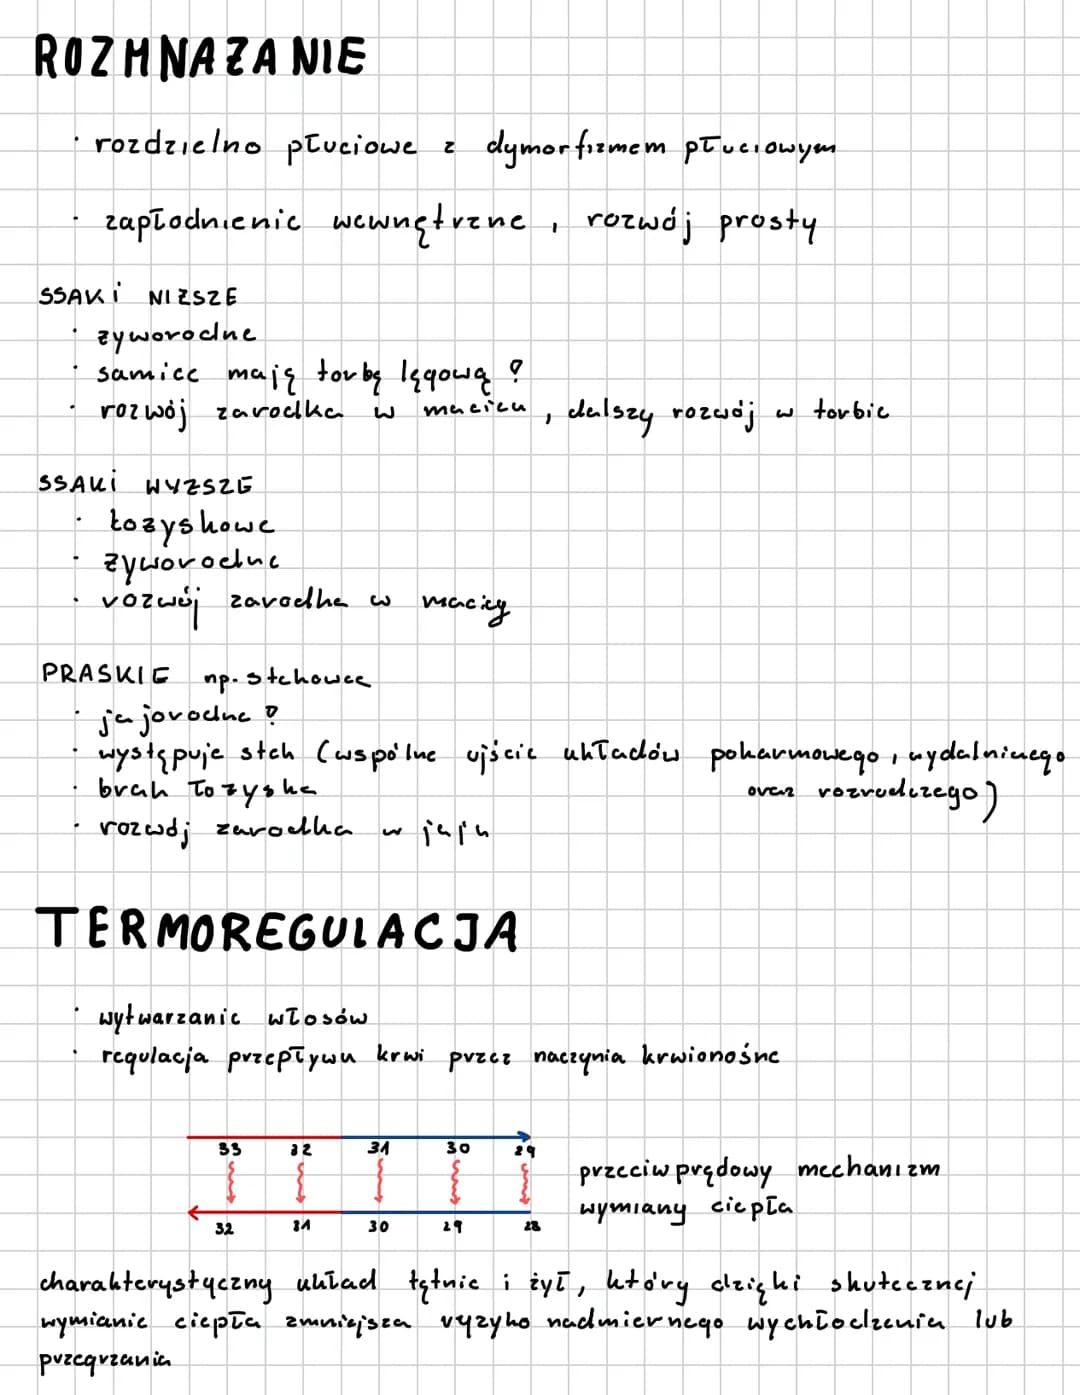 ROZMNAŻANIE
· rozdzielno płciowe z dymorfizmem płciowym
· zapłodnienie wewnętrzne, rozwój prosty
SSAKI NIŻSZE
· żyworodne
· samice mają torbę lęgową ?
· rozwój zarodka w macicy, dalszy rozwój w torbie
SSAKI WYŻSZE
· łożyskowe
· żyworodne
· rozwój zarodka w macicy
PRASKIE np. stekowce
· jajorodne ?
· występuje stek (wspólne ujście układów pokarmowego, wydalniczego
oraz rozrodczego)
· brak łożyska
· rozwój zarodka w jaju
TERMOREGULACJA
· wytwarzanie włosów
· regulacja przepływu krwi przez naczynia krwionośne
33 32 31 30 29
32 31 30 29 28
przeciwprądowy mechanizm
wymiany ciepła
charakterystyczny układ tętnic i żył, który dzięki skutecznej
wymianie ciepła zmniejsza ryzyko nadmiernego wychłodzenia lub
przegrzania